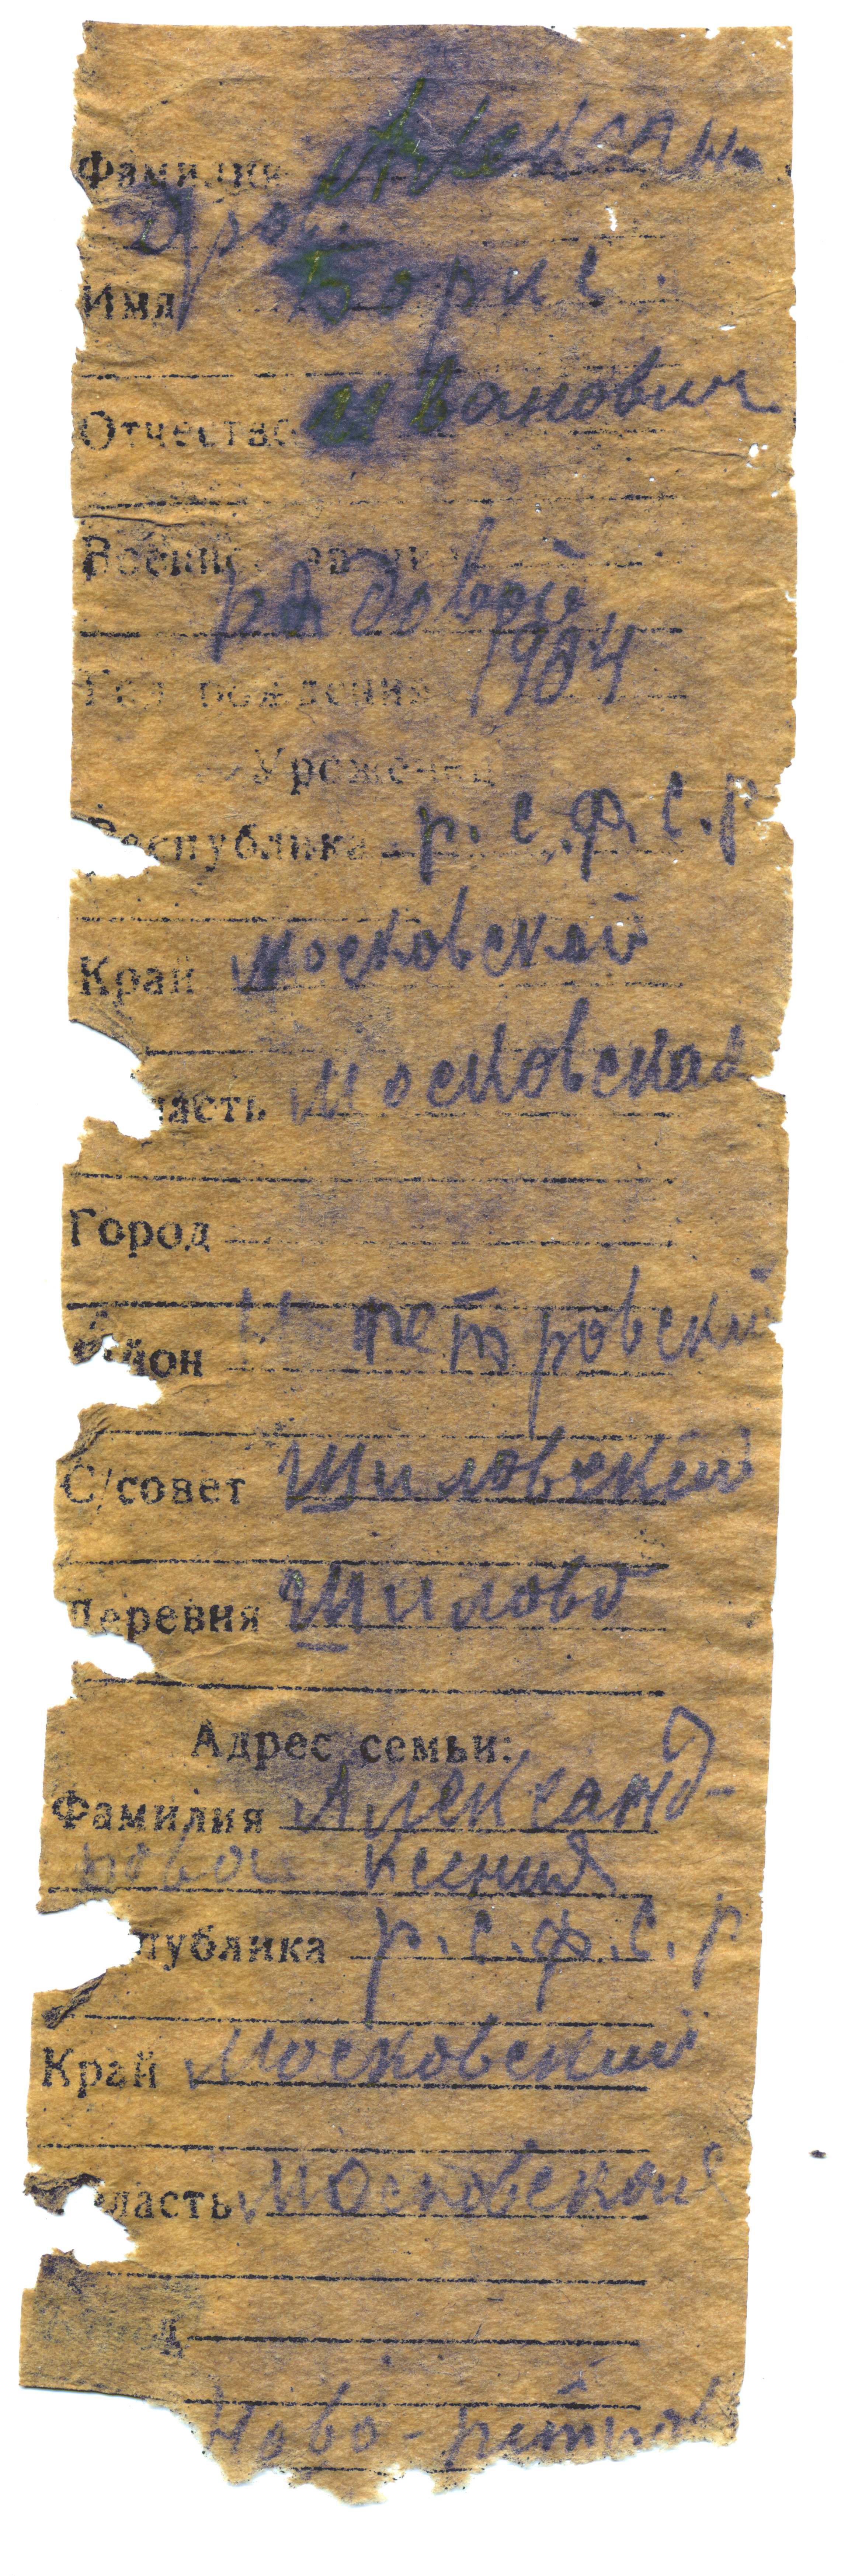 Фамилия Алексан-
дров
Имя Борис
Отчество Иванович
рядовой
Год рождения 1904
Уроженец
Республика р.с.ф.с.р
Край Московский
ласть Московская
Город
Район петровский
С/совет Шиловский
Деревня Шилово
Адрес семьи:
Фамилия Александ-
рова Ксения
публика р.с.ф.с.р
Край Московский
ласть Московская
Ново-петров